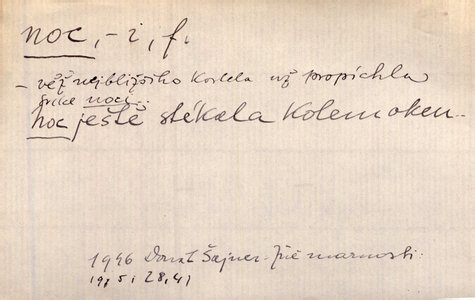 noc, -i, f.
- věž nejbližšího kostela už propíchla
noci..
noc ještě stékala kolem oken..
1946 Donát Šajner
28, 41